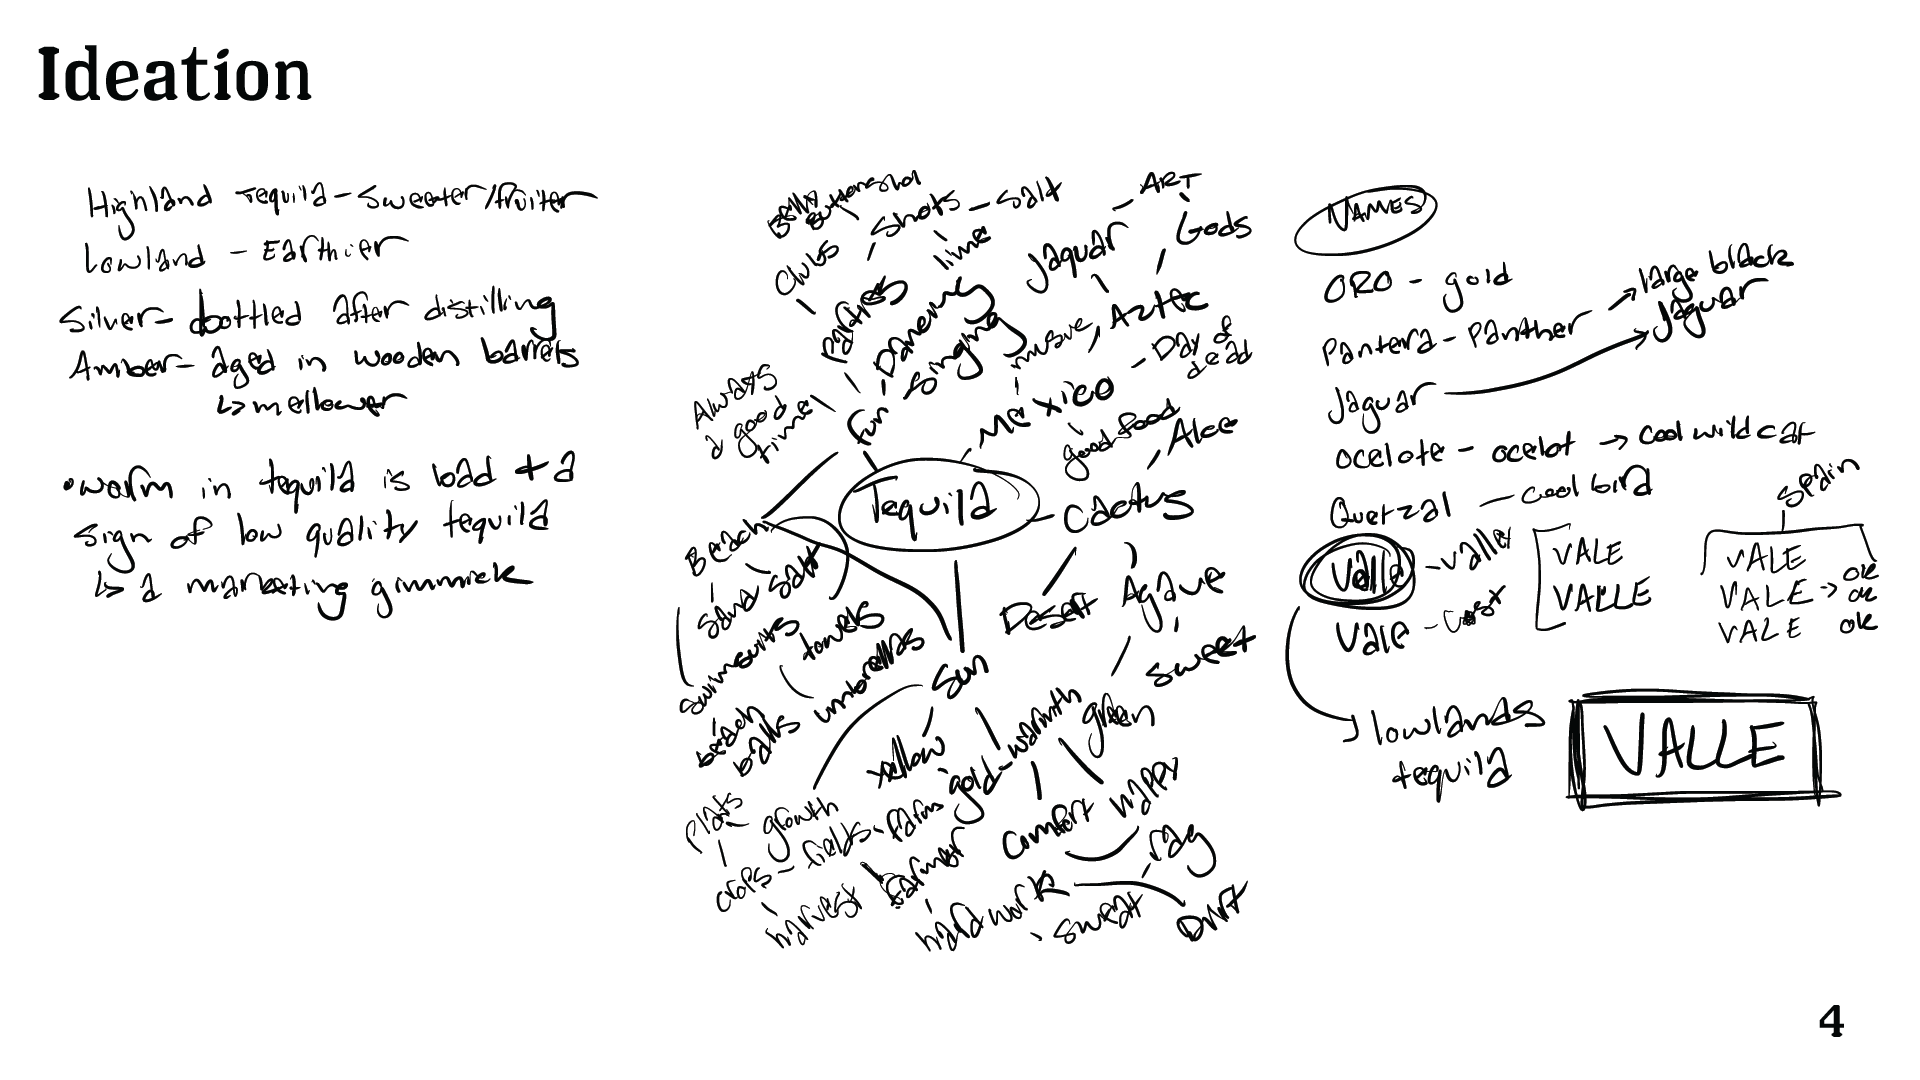 Ideation
Highland Tequila - Sweeter/fruiter
Lowland - Earthier
Silver - bottled after distilling
Amber - aged in wooden barrels
↳ mellower
• worm in tequila is bad + a
sign of low quality tequila
↳ a marketing gimmick
Belly
Buttons
Shots - salt
lime
Clubs
Parties
Dancing
singing
fun
Always
a good
time!
Jaguar - ART
Gods
Aztec
music
Mexico - Day of
dead
good food
Tequila
Cactus
Aloe
Desert
Agave
sweet
green
Beach
sand
salt
swimsuits
towels
beach
balls
umbrellas
Sun
yellow
gold - warmth
comfort
happy
growth
plants
crops - fields - farm
harvest
farmer
hard work
sweat
rag
Dirt
NAMES
ORO - gold
Pantera - Panther → large black
Jaguar
Jaguar
ocelote - ocelot → cool wild cat
Quetzal - cool bird
Valle - valley
Vale - cost
VALE
VALLE
Spain
VALE
VALE → ok
ok
VALE ok
lowlands
tequila
VALLE
4